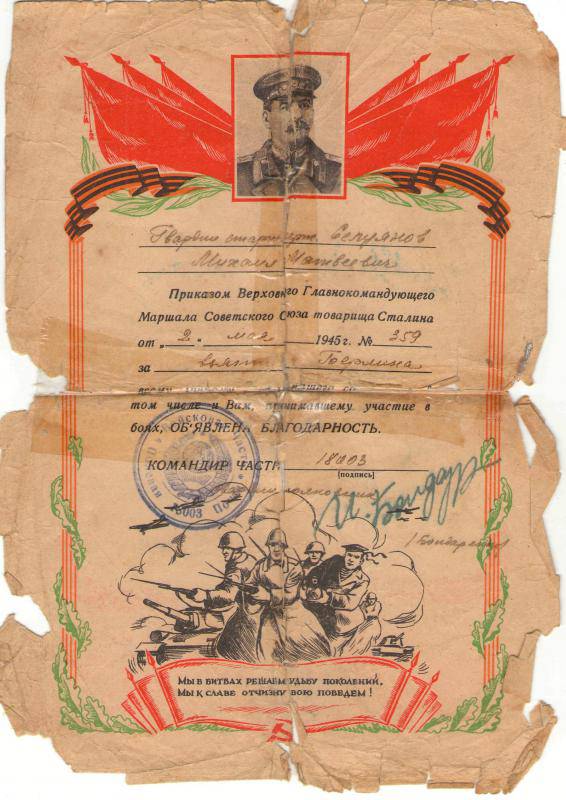 Гвардии старш. серж. Сепуянов
Михаил Матвеевич
Приказом Верховного Главнокомандующего
Маршала Советского Союза товарища Сталина
от „2“ мая 1945 г. № 359
за взятие Берлина
всему
том числе и Вам, принимавшему участие в
боях, ОБ'ЯВЛЕНА БЛАГОДАРНОСТЬ.
КОМАНДИР ЧАСТИ 18003
[подпись]
И. Бондар
18003
Мы в битвах решаем судьбу поколений,
Мы к славе отчизну свою поведем!